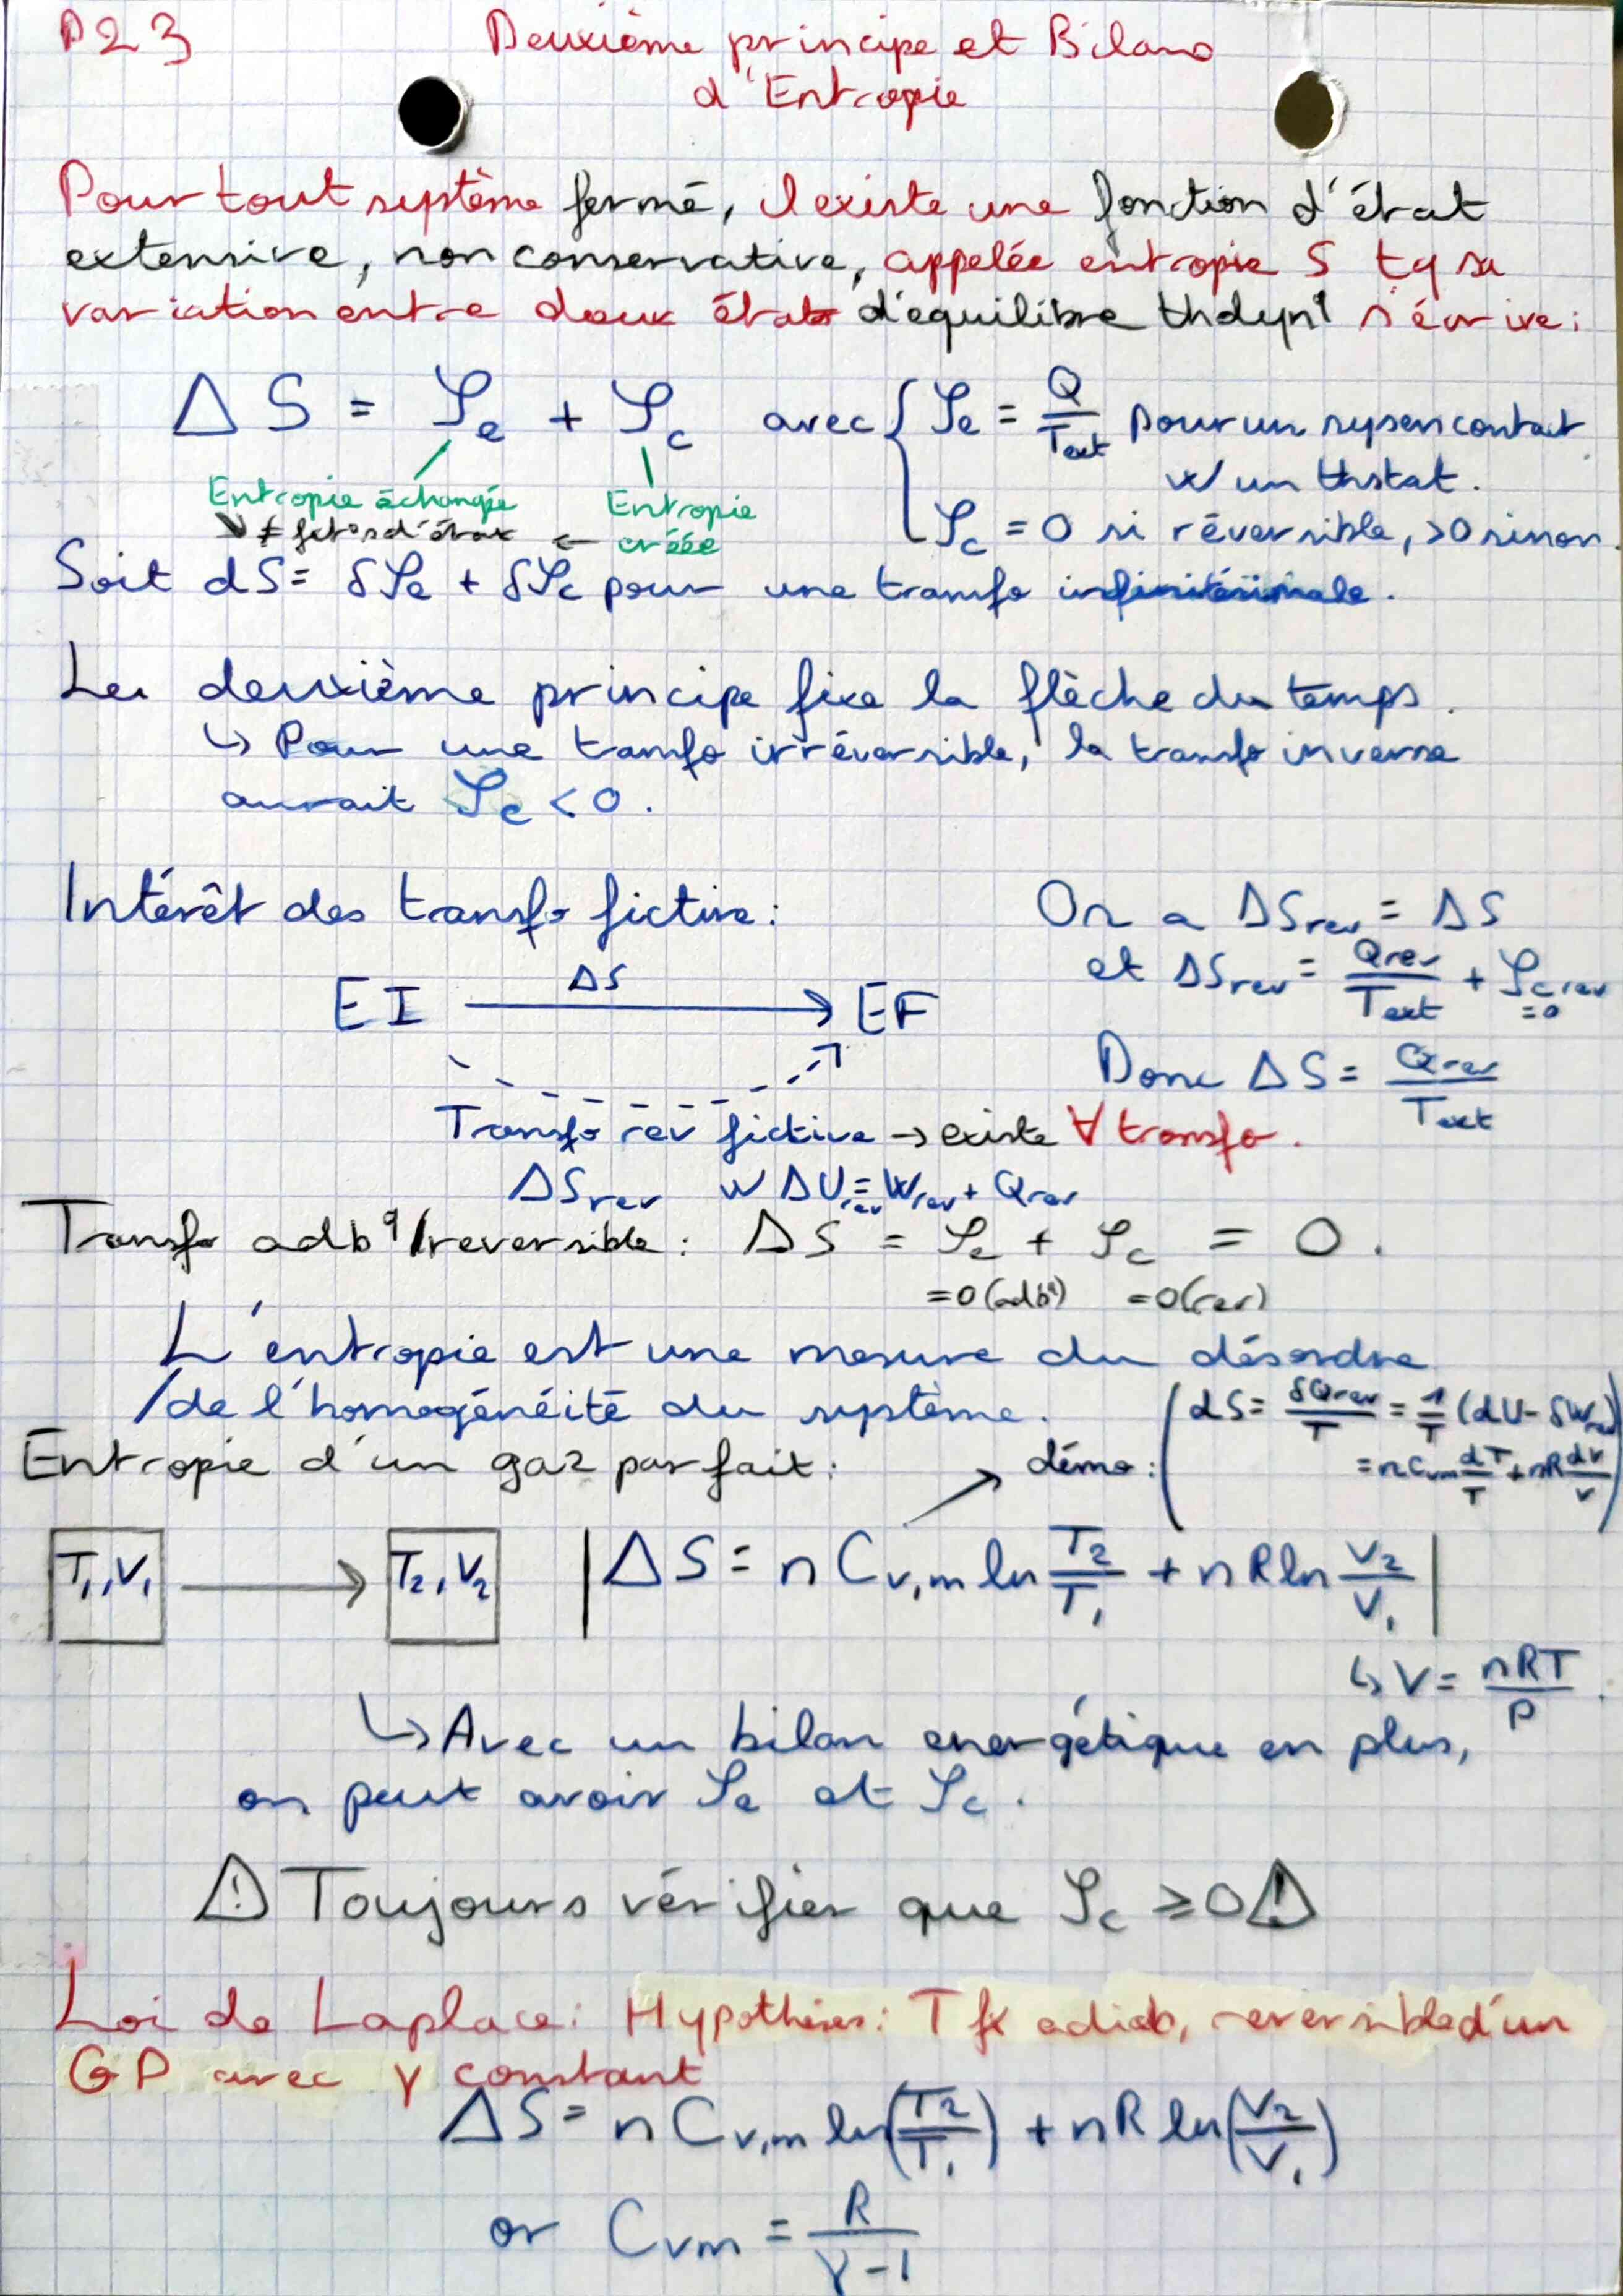 D23 Deuxième principe et Bilans
d'Entropie
Pour tout système fermé, il existe une fonction d'état
extensive, non conservative, appelée entropie S tq sa
variation entre deux états d'équilibre thdyn^q s'écrive :
ΔS = 𝒮e + 𝒮c avec { 𝒮e = Q/Text pour un sys en contact
w/ un thstat.
𝒮c = 0 si réversible, >0 sinon.
Entropie échangée
Entropie créée
↘ ≠ fct°s d'état ←
Soit dS = δ𝒮e + δ𝒮c pour une transfo infinitésimale.
Le deuxième principe fixe la flèche du temps.
↳ Pour une transfo irréversible, la transfo inverse
aurait 𝒮c < 0.
Intérêt des transfo fictive :
EI ΔS → EF
Transfo rev fictive → existe ∀ transfo.
ΔSrev w ΔUrev = Wrev + Qrev
On a ΔSrev = ΔS
et ΔSrev = Qrev/Text + 𝒮c rev
= 0
Donc ΔS = Qrev/Text
Transfo adb^q/reversible : ΔS = 𝒮e + 𝒮c = 0.
=0 (adb^q) =0 (rev)
L'entropie est une mesure du désordre
/de l'homogénéité du système.
Entropie d'un gaz parfait :
→ démo : ( dS = δQrev/T = 1/T (dU - δWrev)
= nCvm dT/T + nR dV/V )
T₁,V₁ → T₂,V₂ | ΔS = n Cv,m ln T₂/T₁ + nR ln V₂/V₁ |
↳ V = nRT/P.
↳ Avec un bilan energétique en plus,
on peut avoir 𝒮e et 𝒮c.
⚠ Toujours vérifier que 𝒮c ≥ 0 ⚠
Loi de Laplace : Hypothèses : Tfx adiab, reversible d'un
GP avec γ constant
ΔS = n Cv,m ln(T₂/T₁) + nR ln(V₂/V₁)
or Cvm = R/(γ-1)